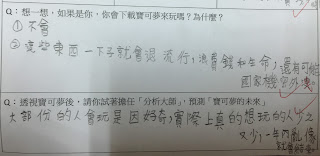 Q：想一想，如果是你，你會下載寶可夢來玩嗎？為什麼？
①不會
②這些東西一下子就會退流行，浪費錢和生命，還有可能
國家機密外洩
Q：透視寶可夢後，請你試著擔任「分析大師」，預測「寶可夢的未來」
大部份的人會玩是因好奇，實際上真的想玩的人少之
又少，一年內亂像
就會結束